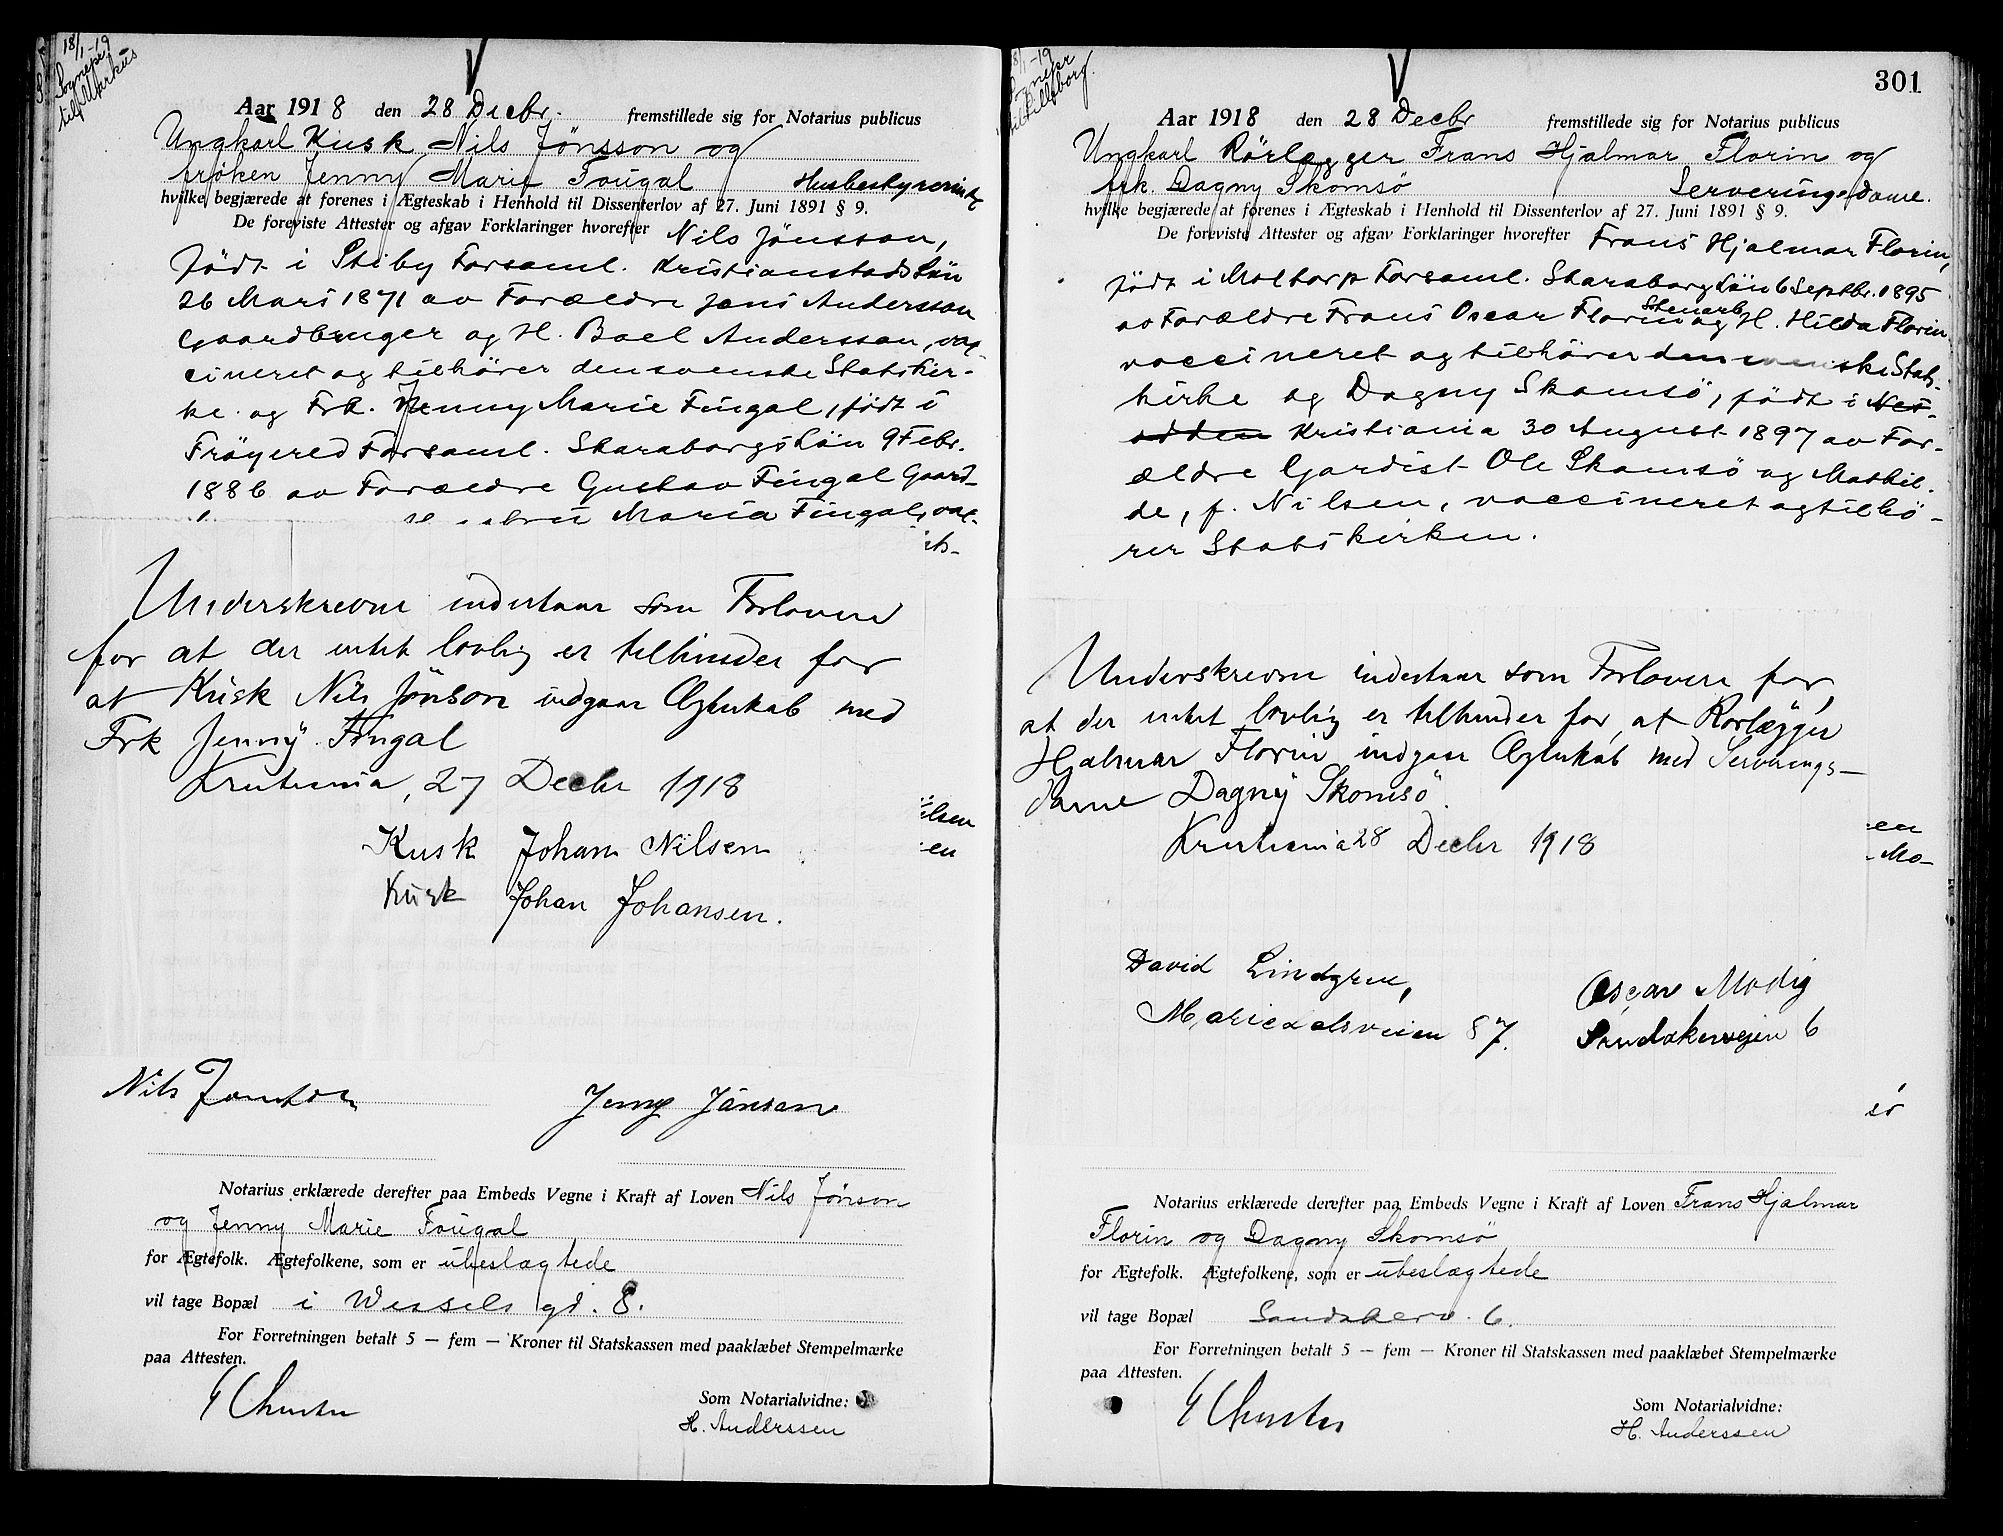 18/1-19
Sognepr
til
Aar 1918 den 28 Decbr. fremstillede sig for Notarius publicus
Ungkarl Kusk Nils Jönsson og
frøken Jenny Marie Fougal Husbestyrerinde
hvilke begjærede at forenes i Ægteskab i Henhold til Dissenterlov af 27. Juni 1891 § 9.
De foreviste Attester og afgav Forklaringer hvorefter Nils Jönsson,
född i Stiby Forsaml. Kristianstads Län
26 Mars 1871 av Forældre Jöns Andersson
Gaardbruger og H. Boel Andersson, vac-
cineret og tilhörer den svenske Statskir-
ke. og Frk. Jenny Marie Fingal, född i
Fröyered Forsaml. Skaraborgs Län 9 Febr.
1886 av Forældre Gustav Fingal Gaard-
Maria Fingal, vac-
ts-
Underskrevne indestaar som Forlovere
for at der intet lovlig er tilhinder for
at Kusk Nils Jönson indgaar Ægteskab med
Frk Jenny Fingal
Kristiania, 27 Decbr 1918
ilsen
Kusk Johan Nilsen
en
Kusk Johan Johansen.
Nils Jönsson Jenny Jönsson
Notarius erklærede derefter paa Embeds Vegne i Kraft af Loven Nils Jönson
og Jenny Marie Fougal
for Ægtefolk. Ægtefolkene, som er ubeslægtede
vil tage Bopæl i Wessels gd. 8.
For Forretningen betalt 5 — fem — Kroner til Statskassen med paaklæbet Stempelmærke
paa Attesten.
Som Notarialvidne:
H. Anderssen
301
18/1-19
Sognepr
Aar 1918 den 28 Decbr fremstillede sig for Notarius publicus
Ungkarl Rörlegger Frans Hjalmar Florin og
frk. Dagny Skomsö Serveringsdame.
hvilke begjærede at forenes i Ægteskab i Henhold til Dissenterlov af 27. Juni 1891 § 9.
De foreviste Attester og afgav Forklaringer hvorefter Frans Hjalmar Florin,
född i Moltorp Forsaml. Skaraborg Län 6 Septbr. 1895
Stenarb.
av Forældre Frans Oscar Florin og H. Hilda Florin
vaccineret og tilhörer den svenske Stats-
kirke og Dagny Skomsö, född i Nes-
odden Kristiania 30 August 1897 av For-
ældre Gardist Ole Skomsö og Mathil-
de, f. Nilsen, vaccineret og tilhö-
rer Statskirken.
Underskrevne indestaar som Forlovere for,
at der intet lovlig er tilhinder for, at Rørlægger
Hjalmar Florin indgaar Ægteskab med Serverings-
dame Dagny Skomsö.
en
Kristiania 28 Decbr 1918
Mo-
David Lindgren, Oscar Modig
Maridalsveien 87. Sandakerveien 6
sö
Notarius erklærede derefter paa Embeds Vegne i Kraft af Loven Frans Hjalmar
Florin og Dagny Skomsö
for Ægtefolk. Ægtefolkene, som er ubeslægtede
vil tage Bopæl Sandakerv. 6.
For Forretningen betalt 5 — fem — Kroner til Statskassen med paaklæbet Stempelmærke
paa Attesten.
Som Notarialvidne:
H. Anderssen